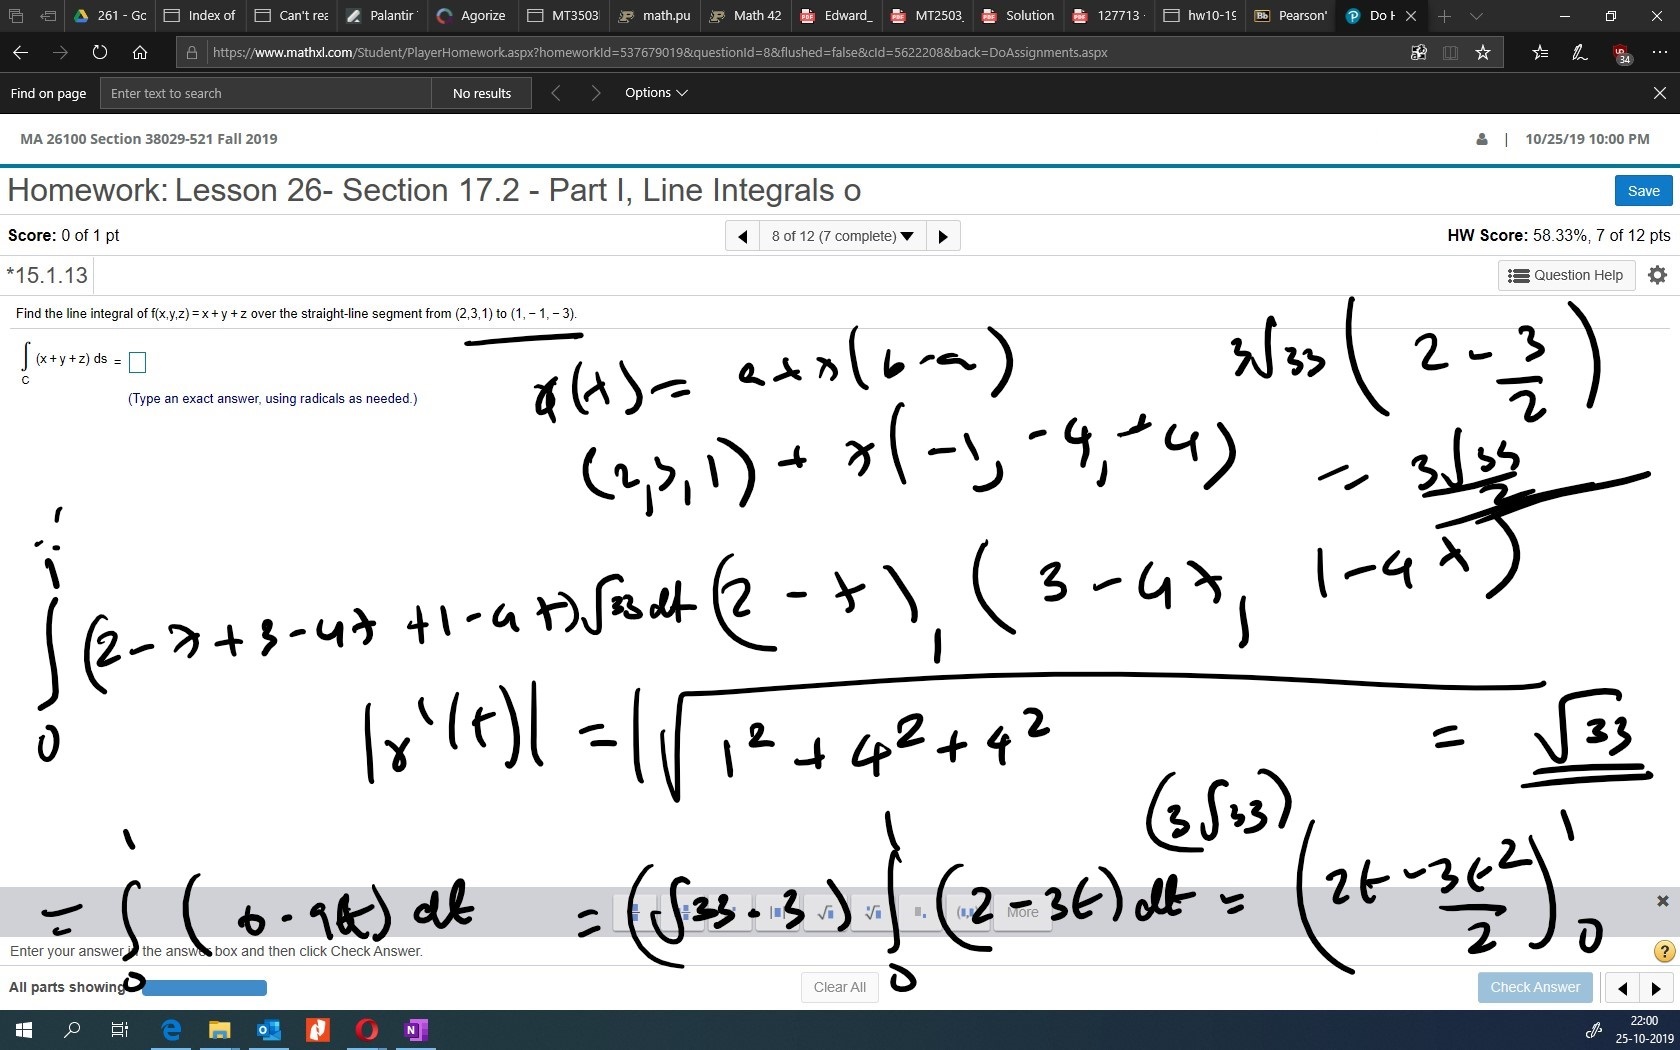 261 - Gc Index of Can't rea Palantir Agorize MT3503 math.pu Math 42 Edward_ MT2503_ Solution 127713 hw10-19 Pearson' Do H
https://www.mathxl.com/Student/PlayerHomework.aspx?homeworkId=537679019&questionId=8&flushed=false&cId=5622208&back=DoAssignments.aspx 34
Find on page Enter text to search No results Options
MA 26100 Section 38029-521 Fall 2019 | 10/25/19 10:00 PM
Homework: Lesson 26- Section 17.2 - Part I, Line Integrals o Save
Score: 0 of 1 pt 8 of 12 (7 complete) HW Score: 58.33%, 7 of 12 pts
*15.1.13 Question Help
Find the line integral of f(x,y,z) = x + y + z over the straight-line segment from (2,3,1) to (1, − 1, − 3).
∫ (x + y + z) ds =
C
(Type an exact answer, using radicals as needed.)
r(t) = a + t(b-a) 3√33 (2 - 3/2)
(2,3,1) + t(-1, -4, +4) = 3√33/2
∫₀¹ (2-t+3-4t+1-4t)√33 dt (2-t), (3-4t, 1-4t)
|r'(t)| = |√1² + 4² + 4² = √33
(3√33)
= ∫₀¹ (6-9t) dt = (√33·3) ∫₀¹ (2-3t) dt = (2t - 3t²/2)₀¹
More
Enter your answer in the answer box and then click Check Answer. ?
All parts showing Clear All Check Answer
22:00
25-10-2019